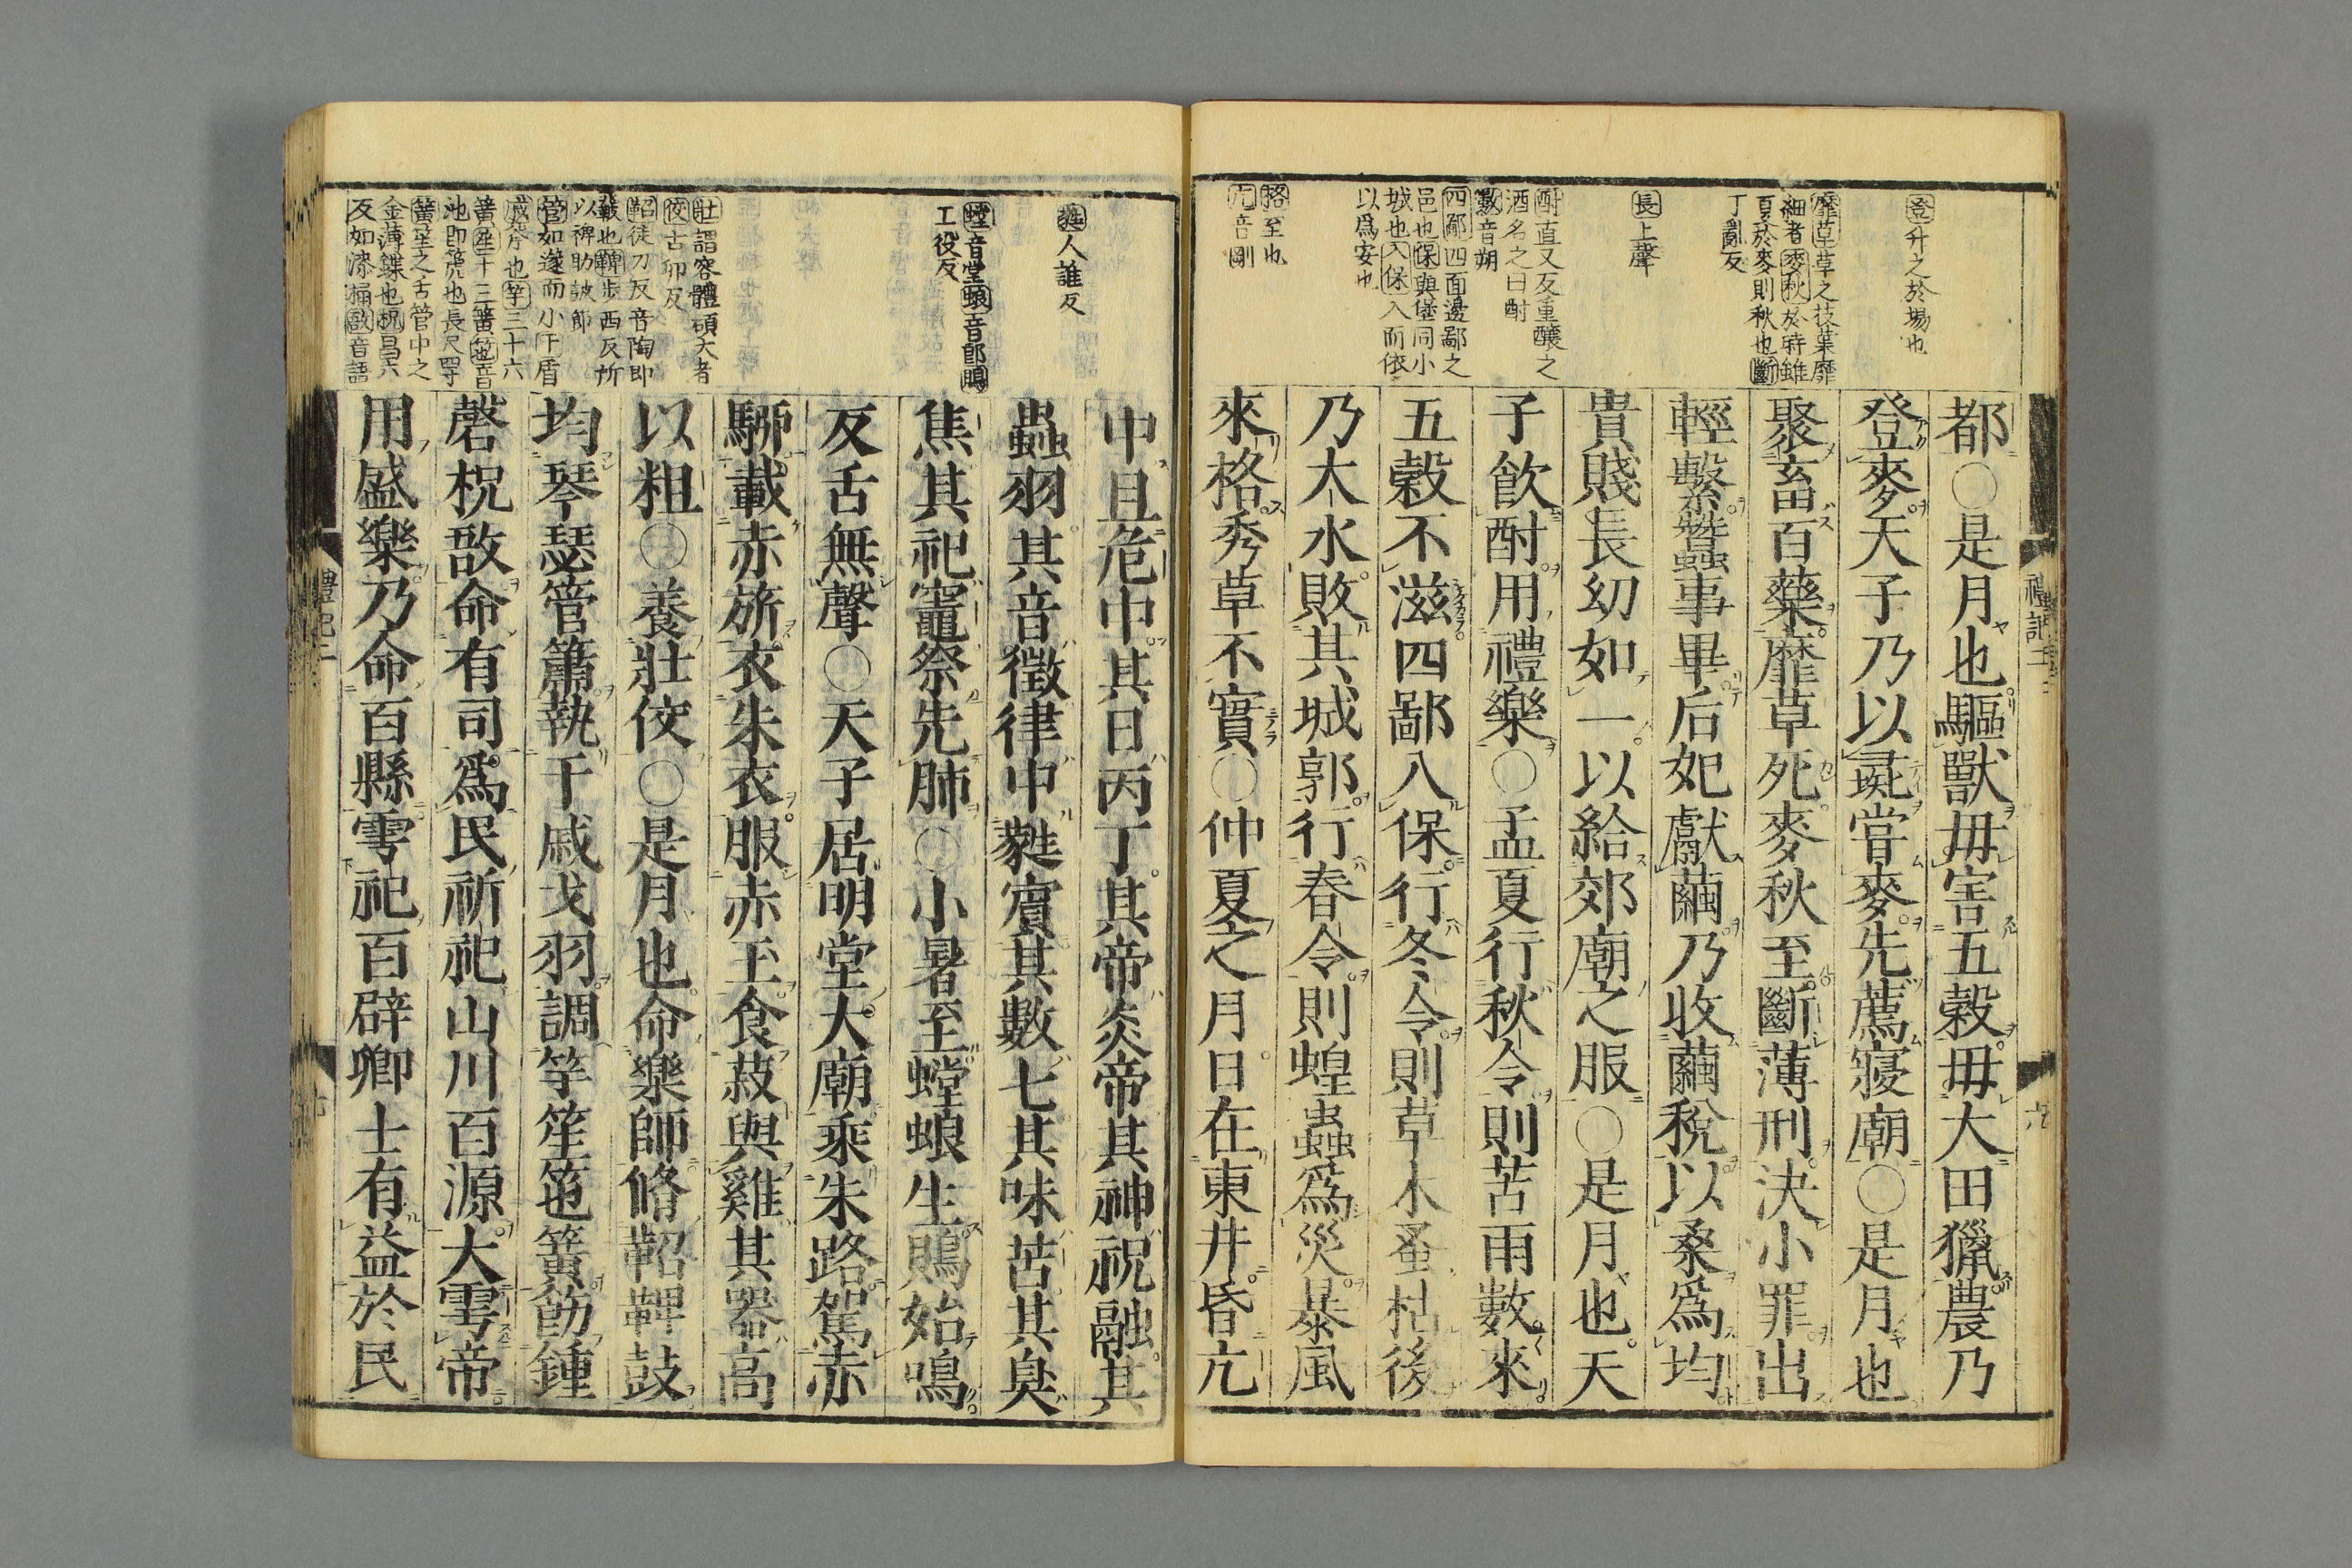 登升之於場也
靡草草之枝葉靡
細者麥秋於時雖
夏於麥則秋也斷
丁亂反
長上聲
酎直又反重釀之
酒名之曰酎
數音朔
四鄙四面邊鄙之
邑也保與堡同小
城也入保入而依
以爲安也
格至也
亢音剛
都○是月也驅獸毋害五穀毋大田獵農乃
登麥天子乃以彘嘗麥先薦寢廟○是月也
聚畜百藥靡草死麥秋至斷薄刑決小罪出
輕繫蠶事畢后妃獻繭乃收繭稅以桑爲均
貴賤長幼如一以給郊廟之服○是月也天
子飮酎用禮樂○孟夏行秋令則苦雨數來
五穀不滋四鄙入保行冬令則草木蚤枯後
乃大水敗其城郭行春令則蝗蟲爲災暴風
來格秀草不實○仲夏之月日在東井昏亢
蕤人誰反
螳音堂蜋音郎鵙
工役反
壯謂容體碩大者
佼古卯反
鞀徒刀反音陶卽
鼗也鞞步西反所
以裨助鼓節
管如篴而小干盾
戚斧也竽三十六
簧笙十三簧竾音
池卽箎也長尺四寸
簧笙之舌管中之
金薄鍱也柷昌六
反如漆桶敔音語
中旦危中其日丙丁其帝炎帝其神祝融其
蟲羽其音徵律中蕤賓其數七其味苦其臭
焦其祀竈祭先肺○小暑至螳蜋生鵙始鳴
反舌無聲○天子居明堂大廟乘朱路駕赤
駵載赤旂衣朱衣服赤玉食菽與雞其器高
以粗○養壯佼○是月也命樂師脩鞀鞞鼓
均琴瑟管簫執干戚戈羽調竽笙竾簧飭鍾
磬柷敔命有司爲民祈祀山川百源大雩帝
用盛樂乃命百縣雩祀百辟卿士有益於民
禮記二